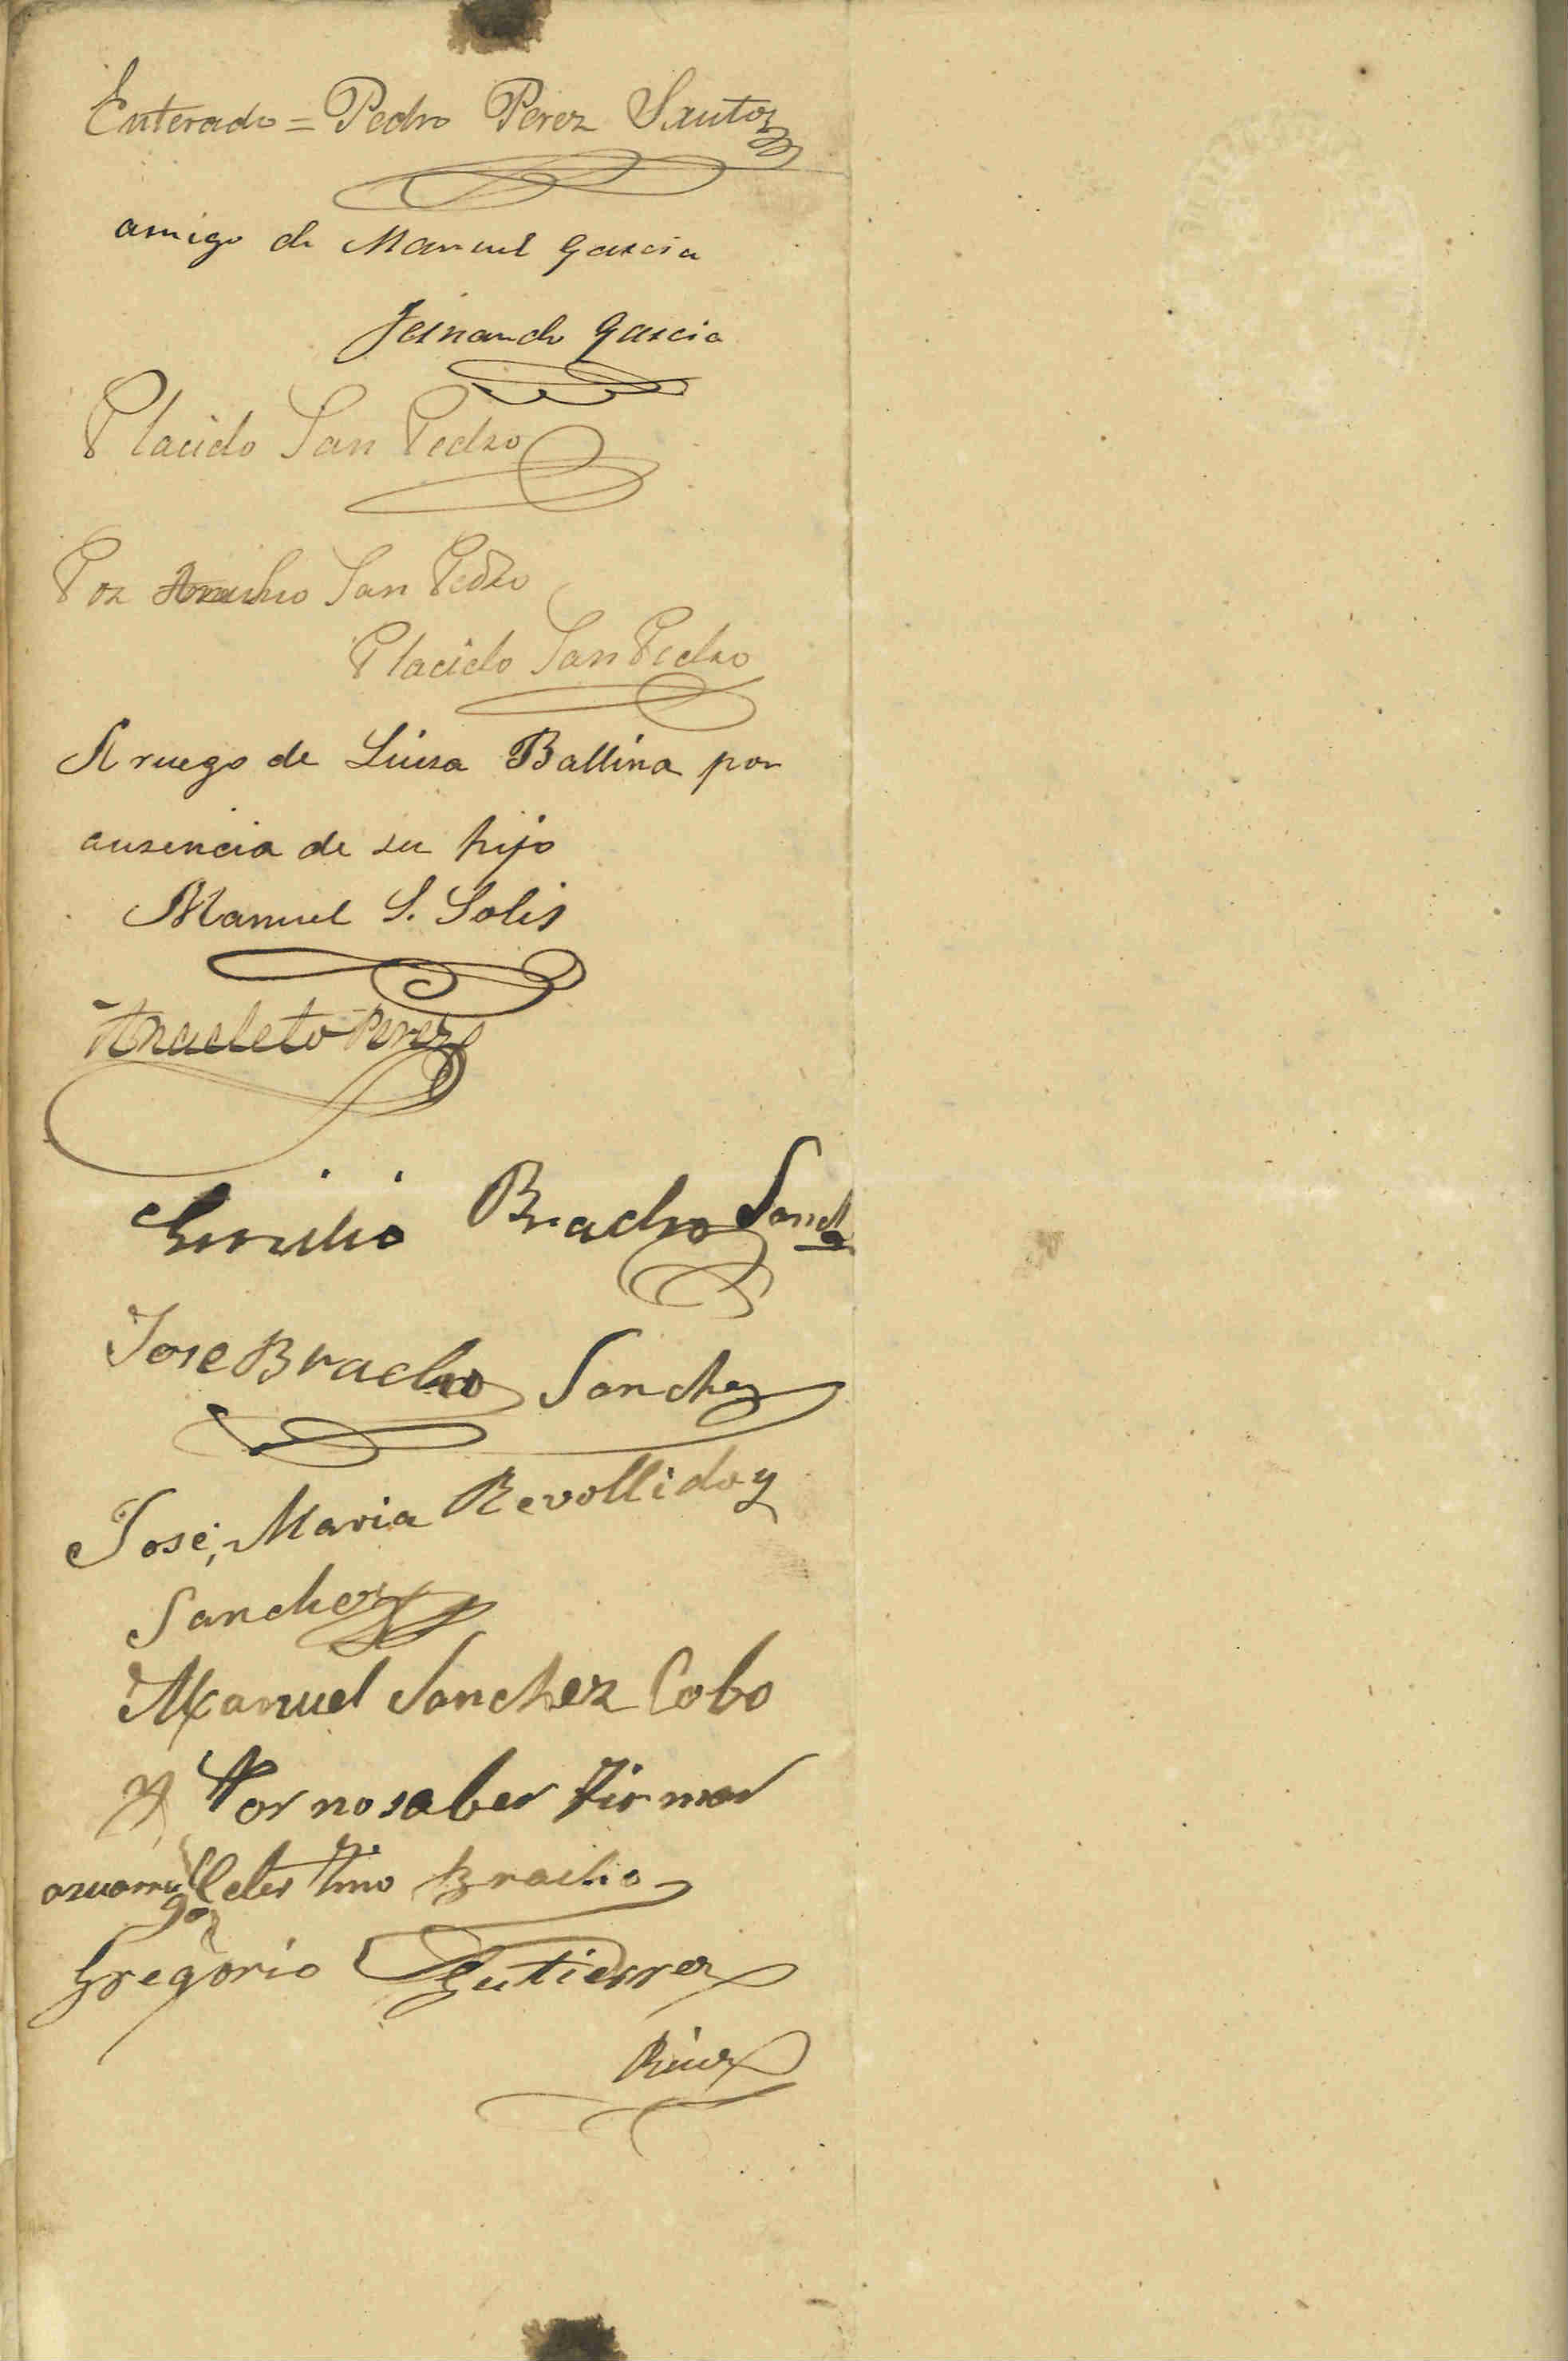 Enterado = Pedro Perez Santos
amigo de Manuel Garcia
Fernando Garcia
Placido San Pedro
Por San Pedro
Placido San Pedro
A ruego de Luisa Ballina por
ausencia de su hijo
Manuel S. Solis
Anacleto Perez
Emilio Bracho Sanchez
Jose Bracho Sanchez
José, Maria Revollido y
Sanchez
Manuel Sanchez Cobo
Por no saber Firmar
Celestino Bracho
Gregorio Gutierrez